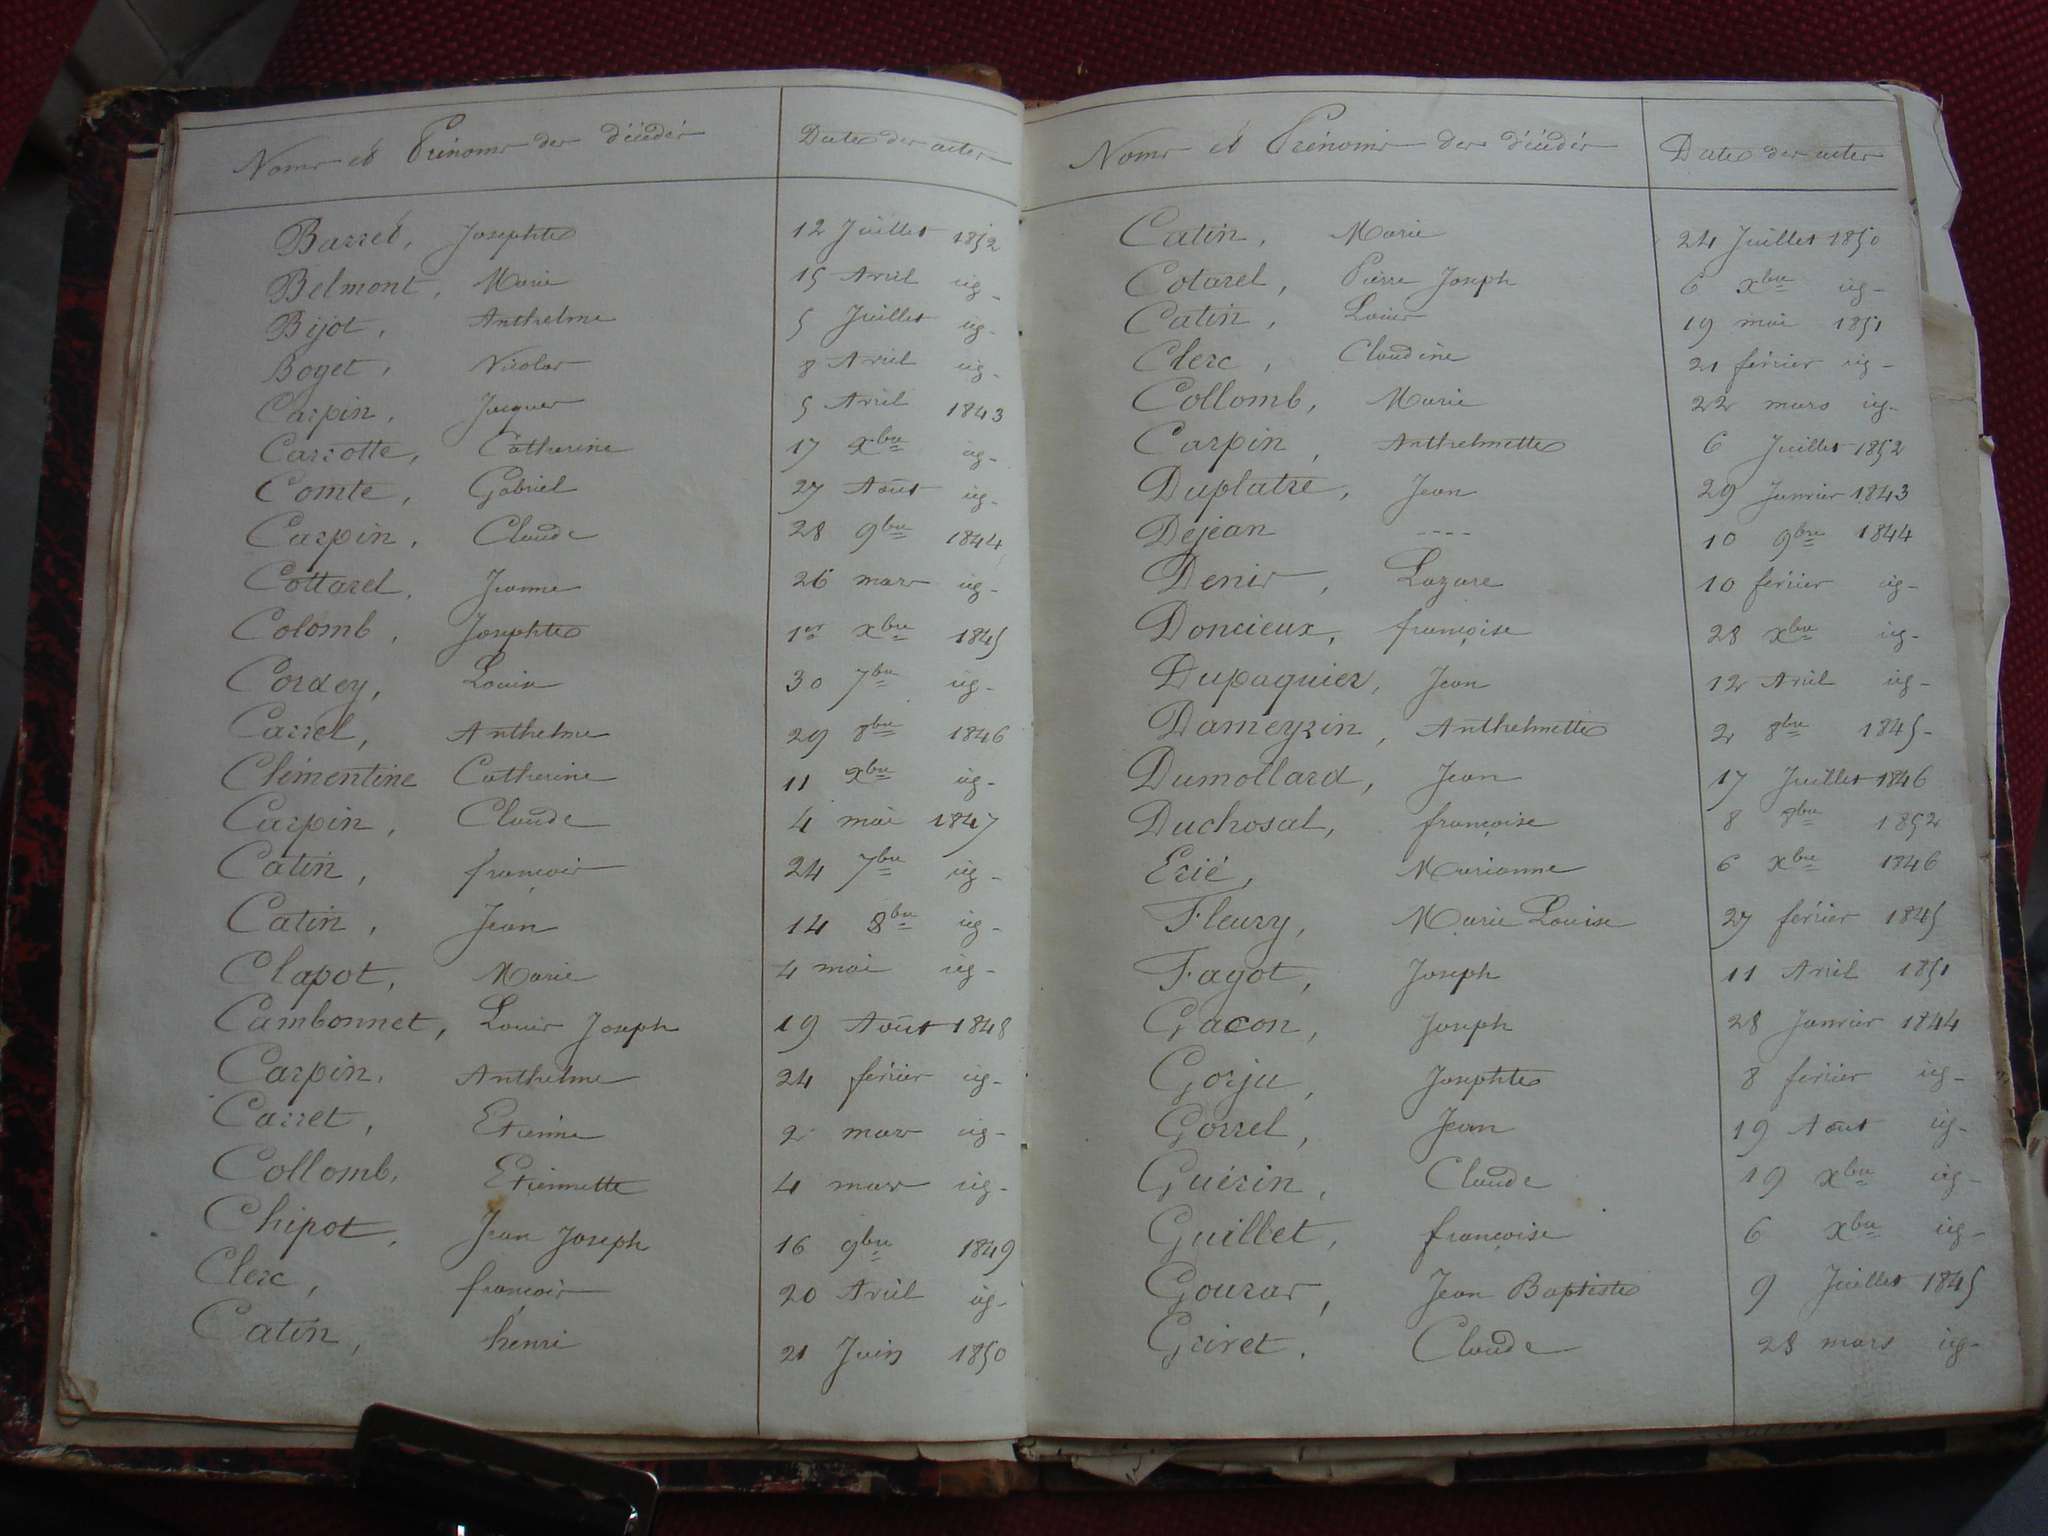 Noms et Prénoms des décédés Dates des actes
Barret, Josephte 12 Juillet 1852
Belmont, Marie 15 Avril ig-
Bijot, Anthelme 5 Juillet ig-
Boget, Nicolas 8 Avril ig-
Carpin, Jacques 5 Avril 1843
Carrotte, Catherine 17 xbre ig-
Comte, Gabriel 27 Août ig-
Carpin, Claude 28 9bre 1844
Cottarel, Jeanne 26 mars ig-
Colomb, Josephte 1er xbre 1845
Cordey, Louise 30 7bre ig-
Carrel, Anthelme 29 8bre 1846
Clémentine Catherine 11 xbre ig-
Carpin, Claude 4 mai 1847
Catin, françois 24 7bre ig-
Catin, Jean 14 8bre ig-
Clapot, Marie 4 mai ig-
Cambonnet, Louis Joseph 19 Août 1848
Carpin, Anthelme 24 février ig-
Carret, Etienne 2 mars ig-
Collomb, Etiennette 4 mars ig-
Chipot, Jean Joseph 16 9bre 1849
Clerc, françois 20 Avril ig-
Catin, henri 21 Juin 1850
Noms et Prénoms des décédés Dates des actes
Catin, Marie 24 Juillet 1850
Cotarel, Pierre Joseph 6 xbre ig-
Catin, Louis 19 mai 1851
Clerc, Claudine 21 février ig-
Collomb, Marie 22 mars ig-
Carpin, Anthelmette 6 Juillet 1852
Duplatre, Jean 29 Janvier 1843
Dejean ---- 10 9bre 1844
Denis, Lazare 10 février ig-
Doncieux, françoise 28 xbre ig-
Dupaquier, Jean 12 Avril ig-
Dameyzin, Anthelmette 2 8bre 1845-
Dumollard, Jean 17 Juillet 1846
Duchosal, françoise 8 9bre 1852
Erié, Marianne 6 xbre 1846
Fleury, Marie Louise 27 février 1845
Fagot, Joseph 11 Avril 1851
Gacon, Joseph 28 Janvier 1844
Gorju, Josephte 8 février ig-
Gorrel, Jean 19 Aout ig-
Guérin, Claude 19 xbre ig-
Guillet, françoise 6 xbre ig-
Gouras, Jean Baptiste 9 Juillet 1845
Griret, Claude 28 mars ig-